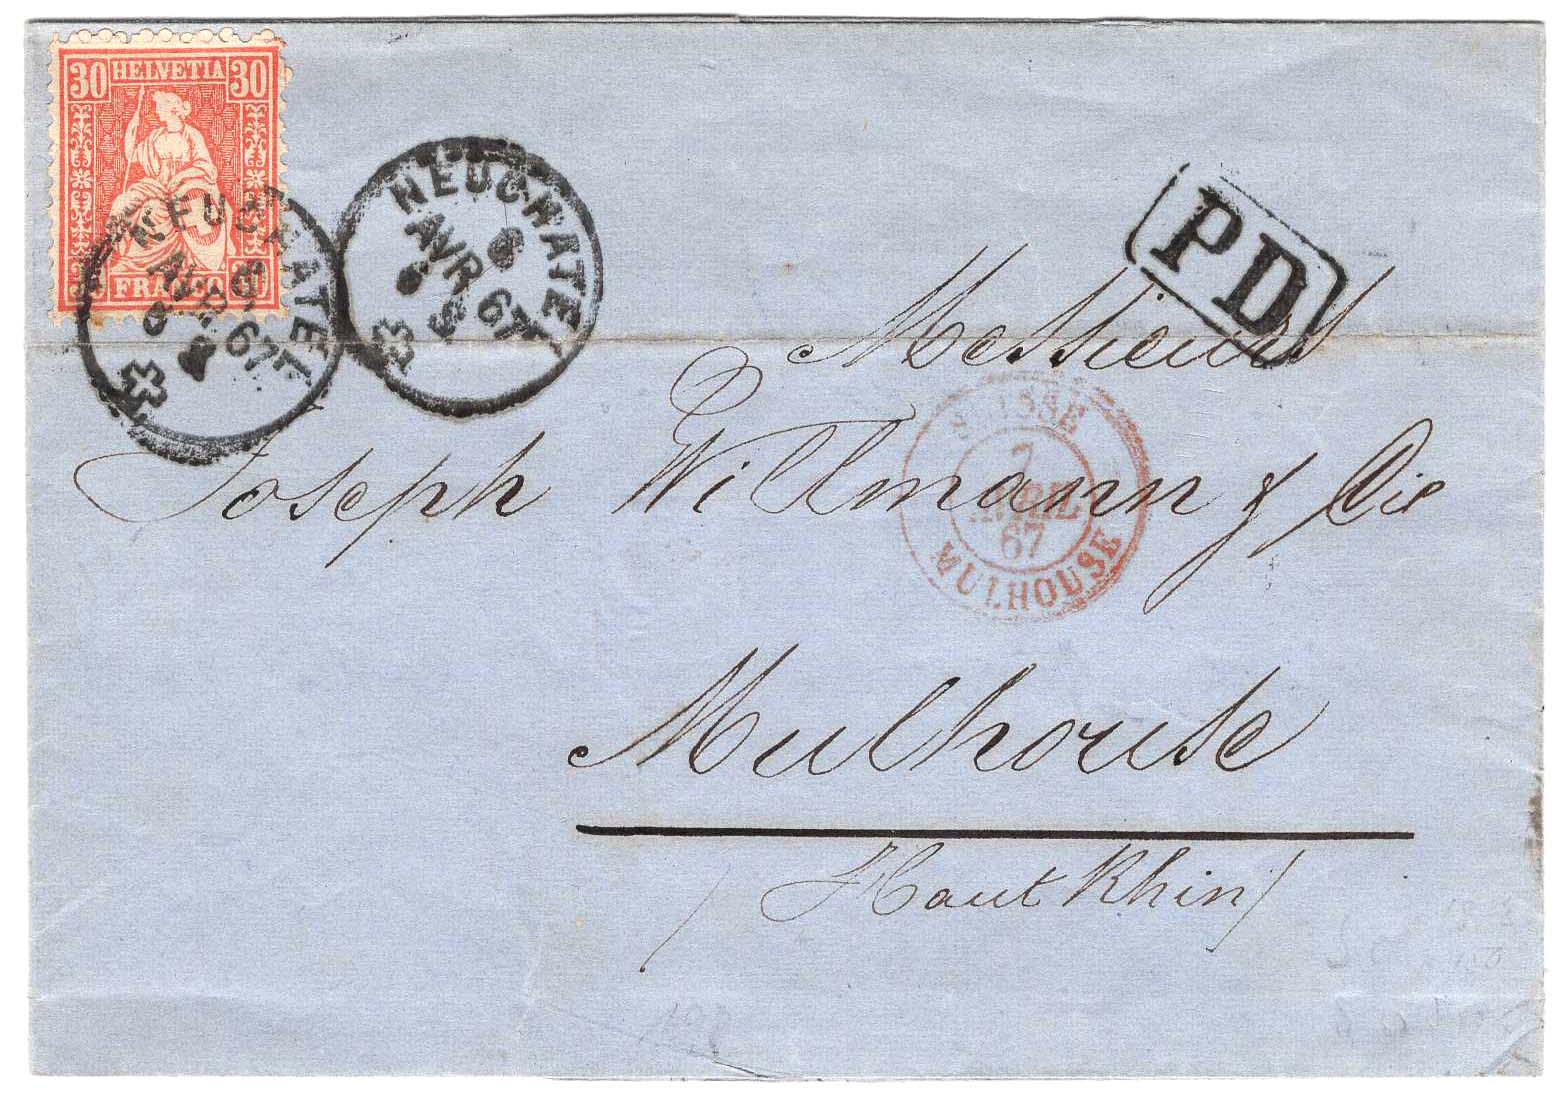 30 HELVETIA 30
FRANCO
NEUCHATEL
6
AVR 67
6
NEUCHATEL
6
AVR 67
6
PD
Messieurs
Joseph Wittmann & Cie
SUISSE
7
AVRIL
67
MULHOUSE
Mulhouse
/ Haut Rhin /